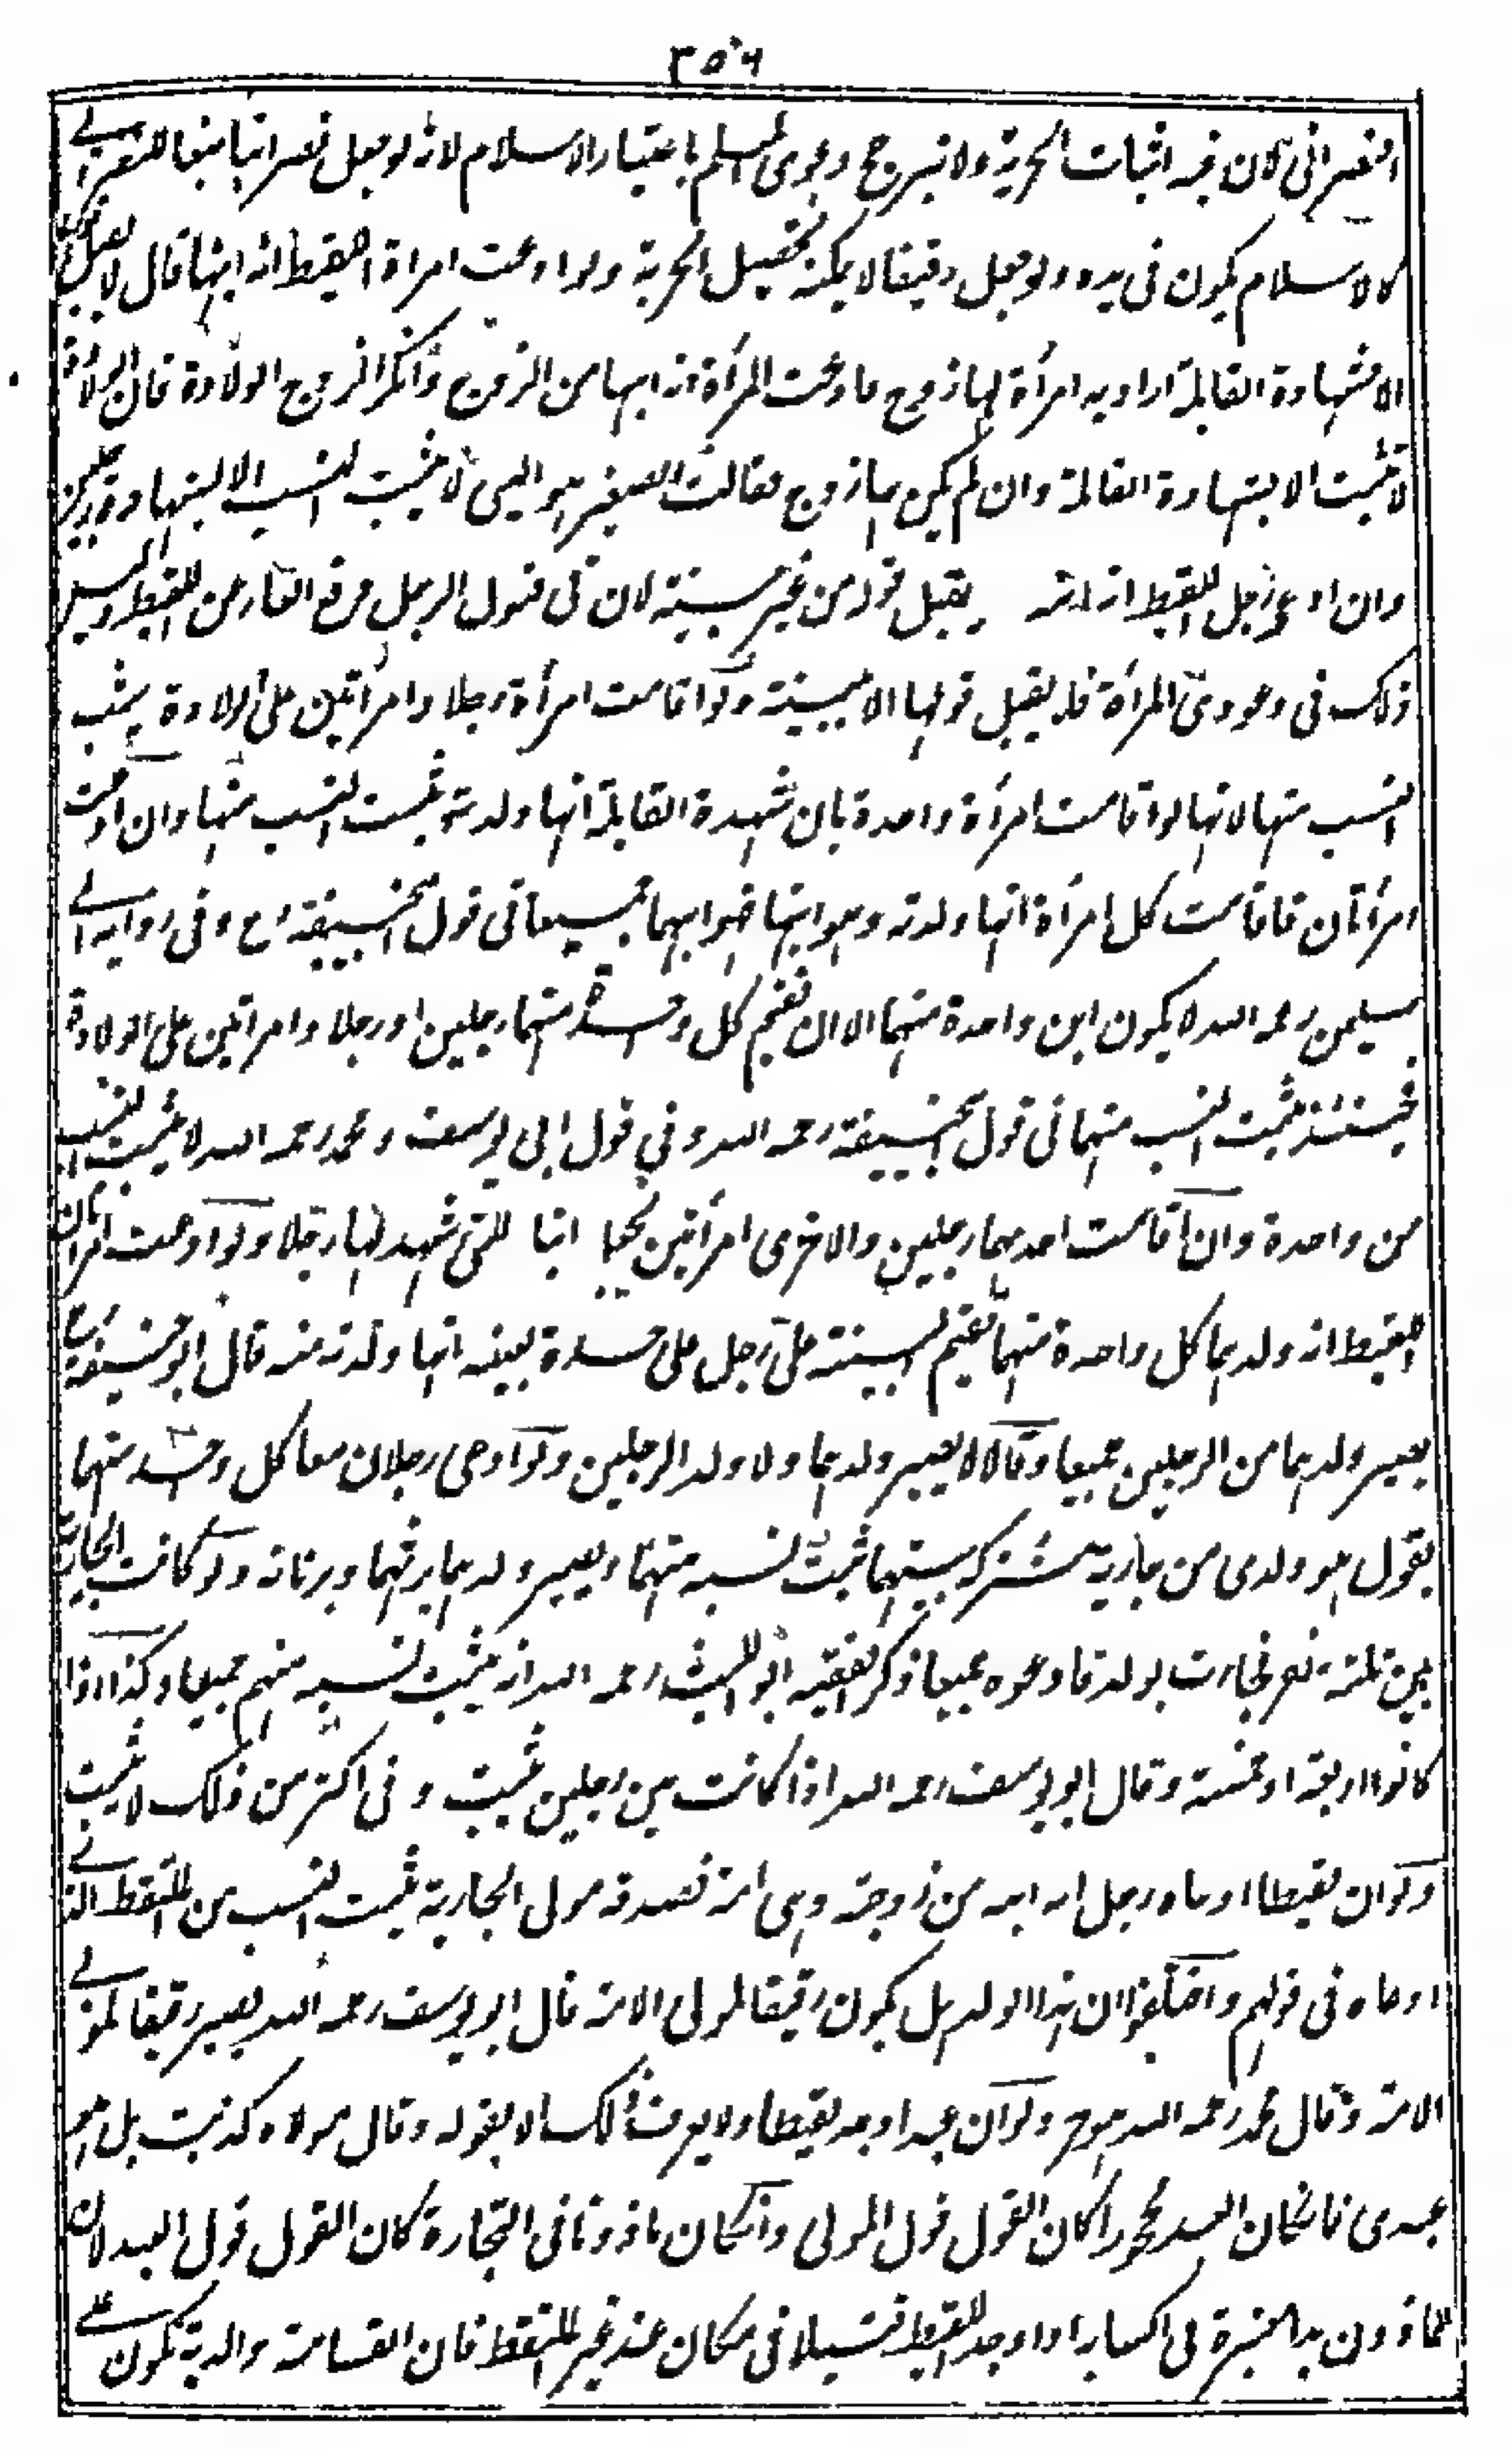 ٣٥٦
النصراني لان فيه اثبات الحرية ولا يترجح دعوى المسلم باعتبار الاسلام لانه لو جعل نصرانيا تبعا للنصراني
كالاسلام يكون في يده ولو جعل رقيقا لا يمكنه تحصيل الحرية ولو ادعت امراة اللقيط انه ابنها قال لا يقبل قولها
الا بشهادة القابلة اراد به امرأة لها زوج فادعت المرأة انه ابنها من الزوج وانكر الزوج الولادة فان الولادة
لا تثبت الا بشهادة القابلة وان لم يكن لها زوج فقالت الصغير هو ابني لا يثبت النسب الا بشهادة رجلين
وان ادعى رجل اللقيط انه ابنه يقبل قوله من غير بينة لان في قبول قول الرجل دفع العار من اللقيط وليس
ذلك في دعوى المرأة فلا يقبل قولها الا ببينة ولو اقامت امرأة رجلا وامرأتين على الولادة يثبت
النسب منها لانها لو اقامت امرأة واحدة بان شهدة القابلة انها ولدته يثبت النسب منها وان ادعت
امرأتان فاقامت كل امرأة انها ولدته وهو ابنها فهو ابنهما جميعا في قول ابيحنيفة رح وفي رواية ابي
سليمن رحمه الله لا يكون ابن واحدة منهما الا ان تقيم كل واحدة منهما رجلين او رجلا وامراتين على الولادة
فحينئذ يثبت النسب منهما في قول ابيحنيفة رحمه الله وفي قول ابي يوسف ومحمد رحمه الله لا يثبت النسب
من واحدة وان اقامت احدهما رجلين والاخرى امرأتين يجعل ابنا للتي شهد لها رجلان ولو ادعت امرأتان
اللقيط انه ولدهما كل واحدة منهما تقيم البينة على رجل على حدة بعينه انها ولدته منه قال ابو حنيفة رح
يصير ولدهما من الرجلين جميعا وقالا لا يصير ولدهما ولا ولد الرجلين ولو ادعى رجلان معا كل واحد منهما
يقول هو ولدى من جارية مشتركة بينهما ثبت نسبه منهما ويصير ولدهما يرثهما ويرثانه ولو كانت الجارية
بين ثلثة نفر فجاءت بولد فادعوه جميعا ذكر الفقيه ابو الليث رحمه الله انه يثبت نسبه منهم جميعا وكذا اذا
كانوا اربعة او خمسة وقال ابو يوسف رحمه الله اذا كانت بين رجلين يثبت وفي اكثر من ذلك لا يثبت
ولو ان لقيطا ادعاه رجل انه ابنه من زوجته وهي امة فصدقه مولى الجارية يثبت النسب من الملتقط الذي
ادعاه في قولهم واختلفوا ان هذا الولد هل يكون رقيقا لمولى الامة قال ابو يوسف رحمه الله يصير رقيقا لمولى
الامة وقال محمد رحمه الله هو حر ولو ان عبدا وجد لقيطا ولا يعرف ذلك الا بقوله وقال مولاه كذبت بل هو
عبدى فان كان العبد محجورا كان القول قول المولى وان كان ماذونا في التجارة كان القول قول العبد لان
للماذون يدا معتبرة في اكسابه اذا وجد اللقيط قتيلا في مكان عند غير الملتقط فان القسامة والدية تكون على